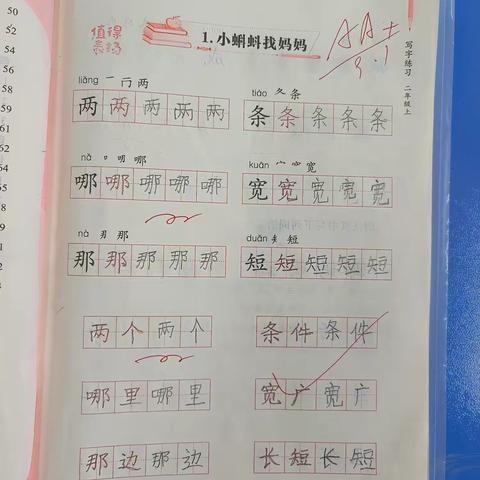 50
52
54
56
58
61
62
值得
表扬
1.小蝌蚪找妈妈
AA+
9.1
写字练习 二年级上
liǎng 一 冂 两
tiáo 夂 条
两 两 两 两 两
条 条 条 条 条
nǎ 口 叨 哪
kuān 宀 宽
哪 哪 哪 哪 哪
宽 宽 宽 宽 宽
nà 那
duǎn 短
那 那 那 那 那
短 短 短 短 短
两个两个
条件条件
哪里哪里
宽广宽广
那边那边
长短长短